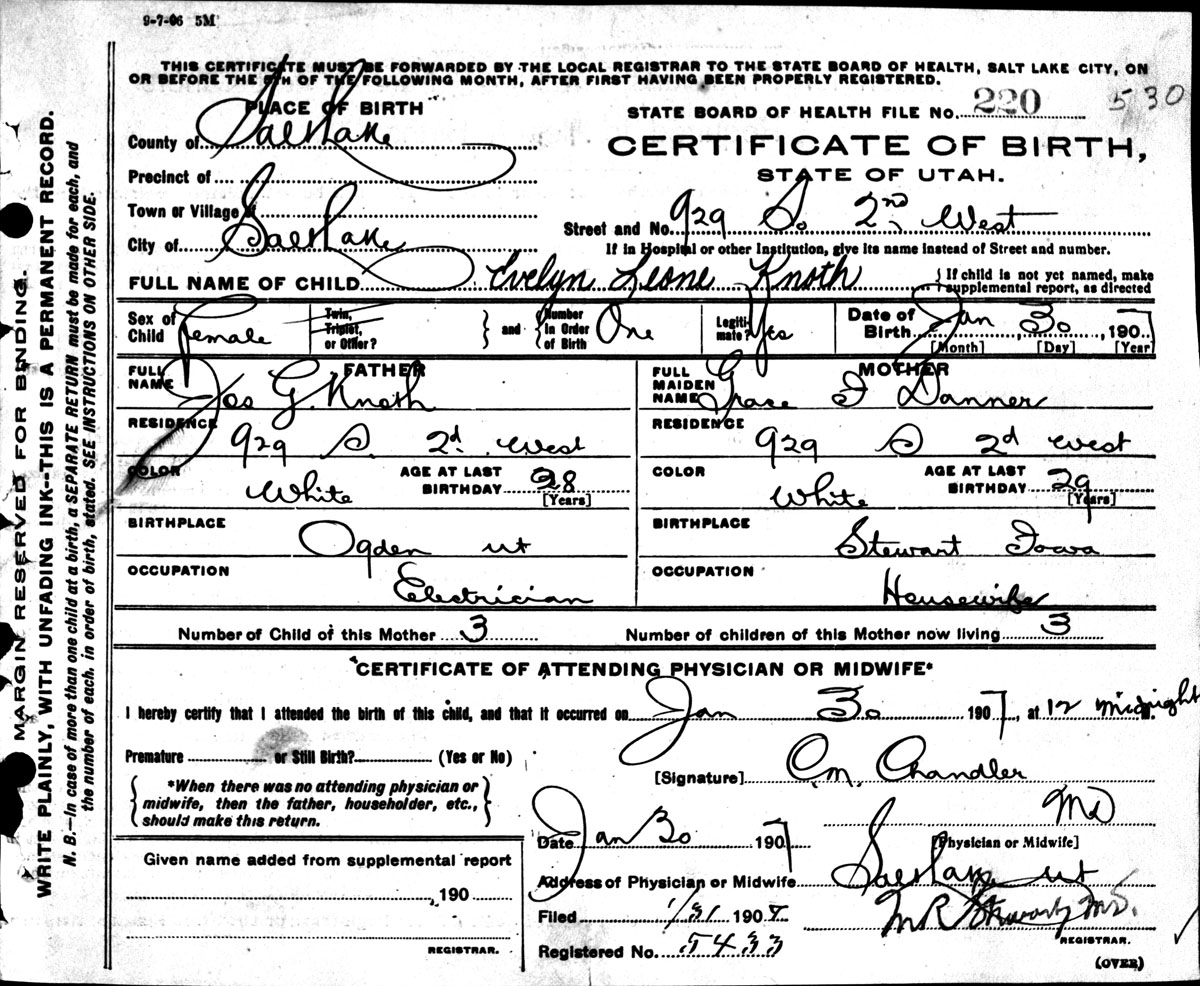 9-7-06 5M
THIS CERTIFICATE MUST BE FORWARDED BY THE LOCAL REGISTRAR TO THE STATE BOARD OF HEALTH, SALT LAKE CITY, ON
OR BEFORE THE 5TH OF THE FOLLOWING MONTH, AFTER FIRST HAVING BEEN PROPERLY REGISTERED.
PLACE OF BIRTH
STATE BOARD OF HEALTH FILE No. 220 530
County of Salt Lake
CERTIFICATE OF BIRTH,
STATE OF UTAH.
Precinct of
Town or Village of
Street and No. 929 So. 2nd West
City of Salt Lake
If in Hospital or other Institution, give its name instead of Street and number.
FULL NAME OF CHILD Evelyn Leone Knoth
{ If child is not yet named, make supplemental report, as directed
Sex of Child Female
Twin, Triplet, or Other? } and { Number in Order of Birth One
Legitimate? Yes
Date of Birth Jan 30, 1907
[Month] [Day] [Year]
FATHER
FULL NAME Jos G. Knoth
RESIDENCE 929 S. 2d. West
COLOR White
AGE AT LAST BIRTHDAY 28 [Years]
BIRTHPLACE Ogden ut
OCCUPATION Electrician
MOTHER
FULL MAIDEN NAME Grace F Danner
RESIDENCE 929 S 2d West
COLOR White
AGE AT LAST BIRTHDAY 29 [Years]
BIRTHPLACE Stewart Iowa
OCCUPATION Housewife
Number of Child of this Mother 3
Number of children of this Mother now living 3
*CERTIFICATE OF ATTENDING PHYSICIAN OR MIDWIFE*
I hereby certify that I attended the birth of this child, and that it occurred on Jan 30 1907, at 12 Midnight M.
Premature or Still Birth? (Yes or No)
[Signature] C.M. Chandler
{ *When there was no attending physician or
midwife, then the father, householder, etc.,
should make this return. }
MD
[Physician or Midwife]
Date Jan 30 1907
Address of Physician or Midwife Salt Lake ut
Given name added from supplemental report
, 190
REGISTRAR.
Filed 1/31 1907
M R Stewart, M.D.
REGISTRAR.
Registered No. 5433
(OVER)
MARGIN RESERVED FOR BINDING.
WRITE PLAINLY, WITH UNFADING INK--THIS IS A PERMANENT RECORD.
N. B.—In case of more than one child at a birth, a SEPARATE RETURN must be made for each, and
the number of each, in order of birth, stated. SEE INSTRUCTIONS ON OTHER SIDE.